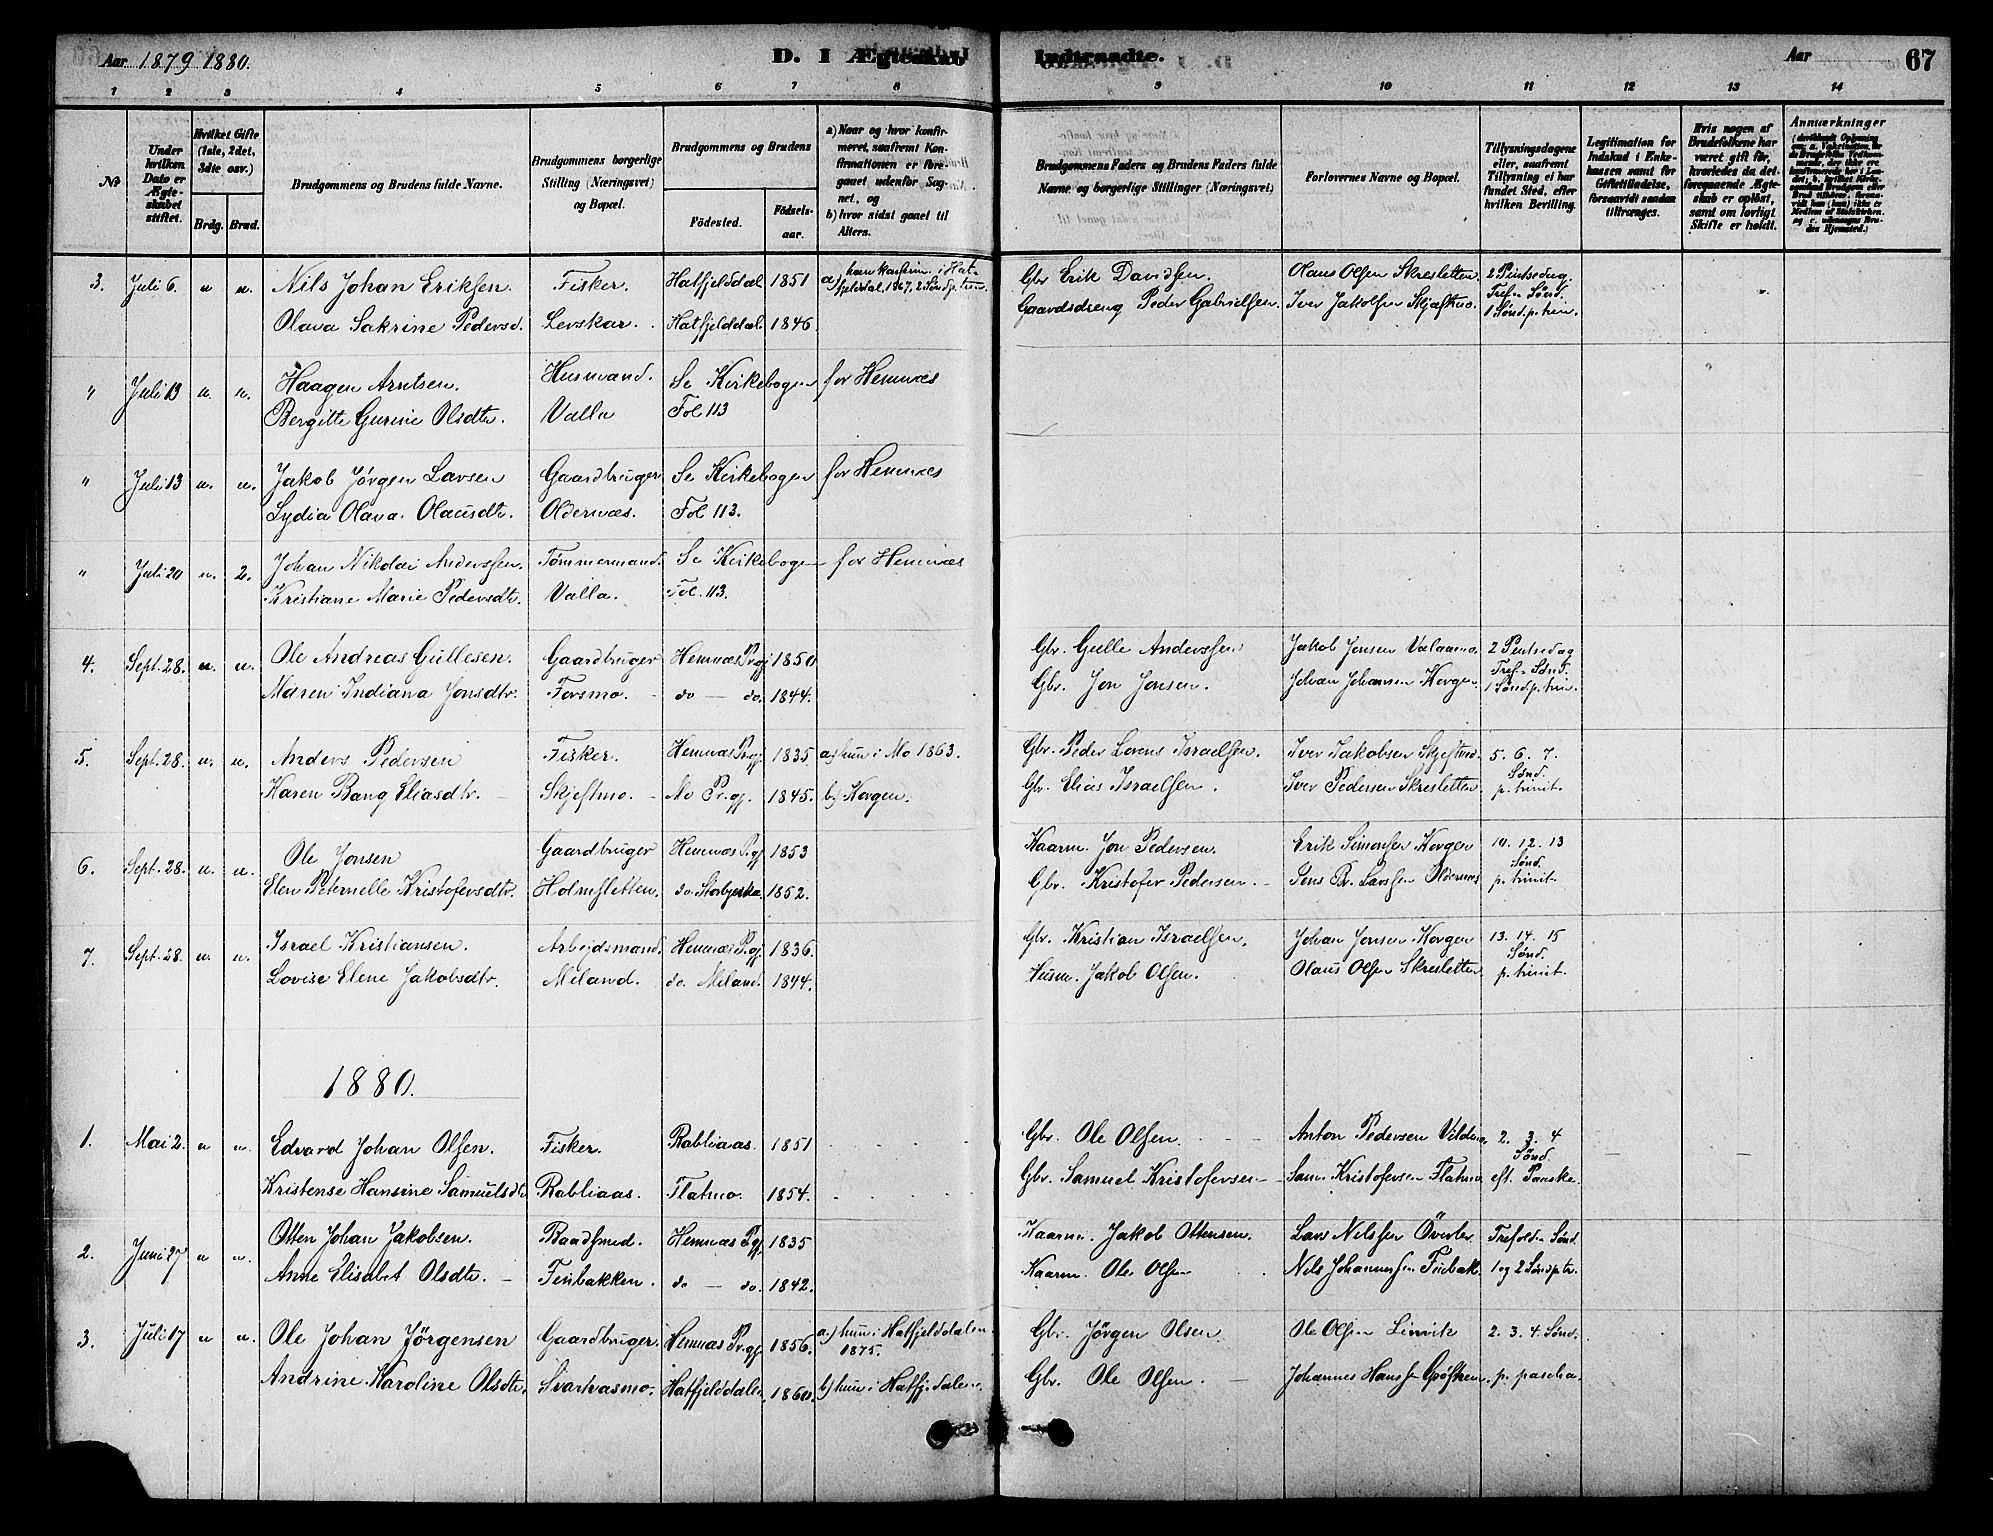 Aar 1879 1880.
D. I Ægteskab Indtraadte.
Aar
67
1 2 3 4 5 6 7 8 9 10 11 12 13 14
№
Under hvilken Dato er Ægteskabet stiftet.
Hvilket Gifte (1ste, 2det, 3dte osv.)
Brdg. Brud.
Brudgommens og Brudens fulde Navne.
Brudgommens borgerlige Stilling (Næringsvei) og Bopæl.
Brudgommens og Brudens
Fødested.
Fødselsaar.
a) Naar og hvor konfirmeret, saafremt Konfirmationen er foregaaet udenfor Sognet, og
b) hvor sidst gaaet til Alters.
Brudgommens Faders og Brudens Faders fulde Navne og borgerlige Stillinger (Næringsvei)
Forlovernes Navne og Bopæl.
Tillysningsdagene eller, saafremt Tillysning ei har fundet Sted, efter hvilken Bevilling.
Legitimation for Indskud i Enkekassen samt for Giftetilladelse, forsaavidt saadan tiltrænges.
Hvis nogen af Brudefolkene har været gift før, hvorledes da det foregaaende Ægteskab er opløst, samt om lovligt Skifte er holdt.
Anmærkninger
3. Juli 6. u u. Nils Johan Eriksen. Fisker. Hatfjelddal 1851 a) han konfirm. i Hatfjelddal, 1867, 2 Sønd p. trin. Gbr Erik Davidsen. Olaus Olsen Skresletten 2 Pintsedag. Tref. Sønd. 1 Sønd. p. trin.
Olava Sakrine Pedersd. Levskar. Hatfjelddal 1846. Gaardsdreng Peder Gabrielsen. Iver Jakobsen Skjeftmo.
" Juli 13 u. u. Haagen Arntsen. Husmand. Se Kirkebogen for Hemnæs
Bergitte Gurine Olsdtr. Valla Fol 113
" Juli 13 u. u. Jakob Jørgen Larsen Gaardbruger Se Kirkebogen for Hemnæs
Lydia Olava Olausdtr. Oldernæs. Fol 113.
" Juli 20 u. 2. Johan Nikolai Anderssen. Tømmermand. Se Kirkebogen for Hemnæs
Kristiane Marie Pedersdtr. Valla. Fol. 113.
4. Sept. 28. u. u. Ole Andreas Gullesen. Gaardbruger Hemnæs Prgj 1850 Gbr. Gulle Anderssen Jakob Jensen 2 Pintsedag Tref. Sønd. 1 Sønd p. trin.
Maren Indiana Jonsdtr. Forsmo. do — do. 1844. Gbr. Jon Jonsen. Johan Johansen Korgen.
5. Sept. 28. u. u. Anders Pedersen Fisker. Hemnæs Prgj. 1835 a) hun i Mo 1863. Gbr. Peder Lorens Israelsen. Iver Jakobsen Skjeftmo. 5. 6. 7. Sønd. p. trinit.
Karen Bang Eliasdtr. Skjeftmo. Mo Pr.gj. 1845. b) Korgen. Gbr. Elias Israelsen. Iver Pedersen Skresletten
6. Sept. 28. u. u. Ole Jonsen Gaardbruger Hemnæs P.gj. 1853 Kaarm. Jon Pedersen. Erik Simonsen Korgen 10. 12. 13 Sønd. p. trinit.
Elen Peternelle Kristofersdtr. Holmsletten. do. 1852. Gbr. Kristofer Pedersen. Jens Larssen Oldernæs
7. Sept. 28. u. u. Israel Kristiansen. Arbejdsmand. Hemnæs P.gj. 1836. Gbr. Kristian Israelsen. Johan Jonsen Korgen 13. 14. 15 Sønd. p. trinit.
Lovise Elene Jakobsdtr. Miland. do. Miland. 1844. Husm. Jakob Olsen. Olaus Olsen Skresletten
1880.
1. Mai 2. u u. Edvard Johan Olsen. Fisker. Rabliaas. 1851 Gbr. Ole Olsen. Anton Pedersen 2. 3. 4 Sønd. eft. Paaske.
Kristense Hansine Samuelsdtr. Rabliaas. Flatmo. 1854. Gbr. Samuel Kristofersen Sam. Kristofersen Flatmo
2. Juni 27 u u. Otten Johan Jakobsen. Baadsmed. Hemnæs P.gj. 1835 Kaarm. Jakob Ottensen. Lars Nilssen Trefold. Sønd. 1 og 2 Sønd p. tr.
Anne Elisabet Olsdtr. Finbakken. do — do. 1842. Kaarm. Ole Olsen Nils Johannessen Finbak.
3. Juli 17 u u. Ole Johan Jörgensen Gaardbruger. Hemnæs Pr.gj. 1856. a) hun i Hatfjelddalen 1875. Gbr. Jörgen Olsen. Ole Olsen Linvik 2. 3. 4. Sønd. p. pascha.
Andrine Karoline Olsdtr. Svartvasmo. Hatfjelddalen. 1860. b) hun i Hatfjelddalen. Gbr. Ole Olsen. Johannes Hanss.